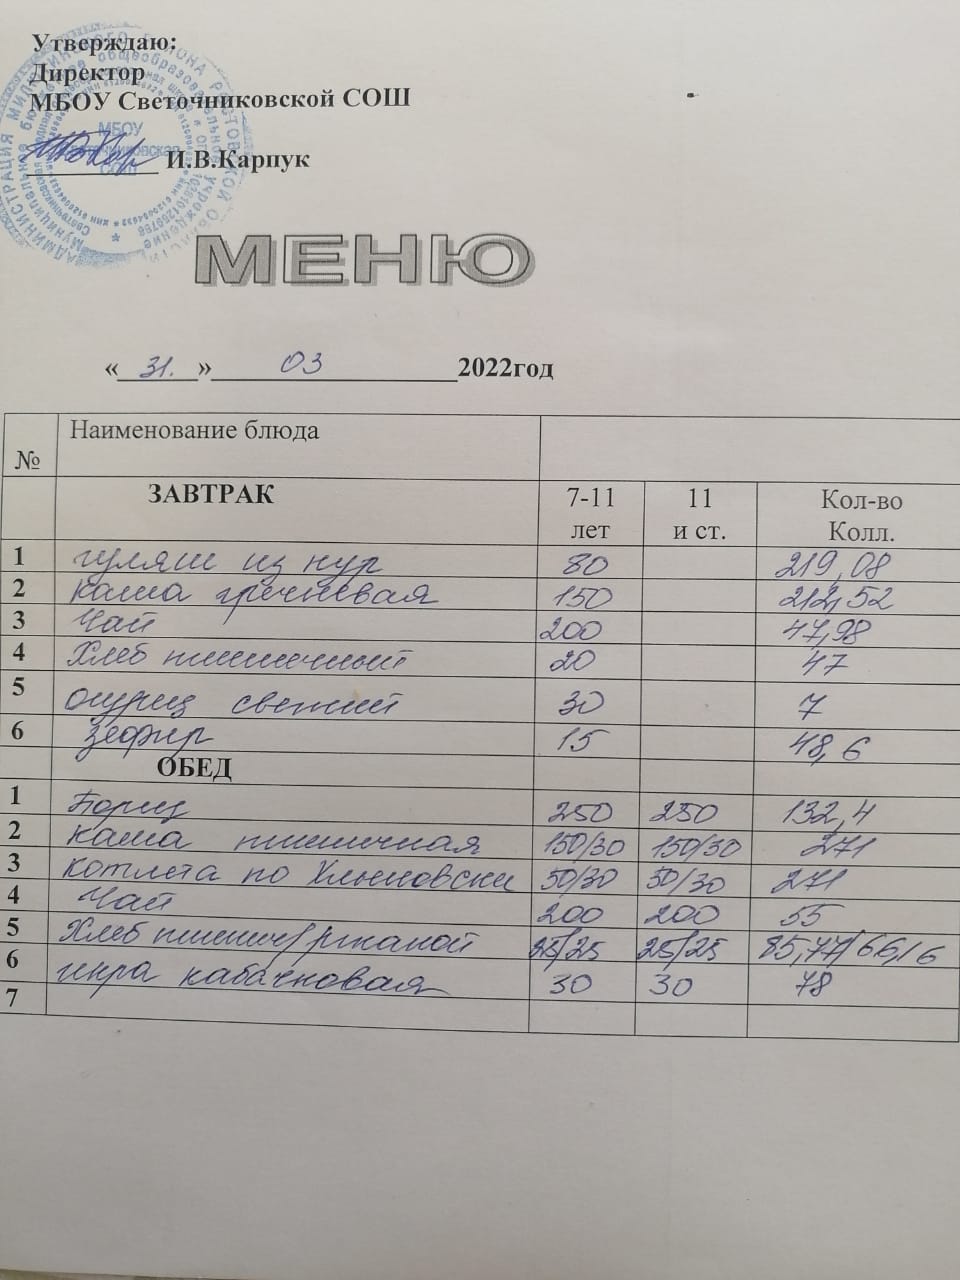 Утверждаю:
Директор
МБОУ Светочниковской СОШ
И.В.Карпук
МБОУ
СОШ
МЕНЮ
« 31. » 03 2022год
№ Наименование блюда
ЗАВТРАК 7-11 лет 11 и ст. Кол-во Колл.
1 гуляш из кур 80 219,08
2 каша гречневая 150 212,52
3 Чай 200 47,98
4 Хлеб пшеничный 20 47
5 огурец свежий 30 7
6 Зефир 15 48,6
ОБЕД
1 Борщ 250 250 132,4
2 каша пшеничная 150/30 150/30 271
3 котлета по 50/30 50/30 271
4 Чай 200 200 55
5 Хлеб пшенич/ржаной 25/25 25/25 85,77/66,16
6 икра кабачковая 30 30 78
7